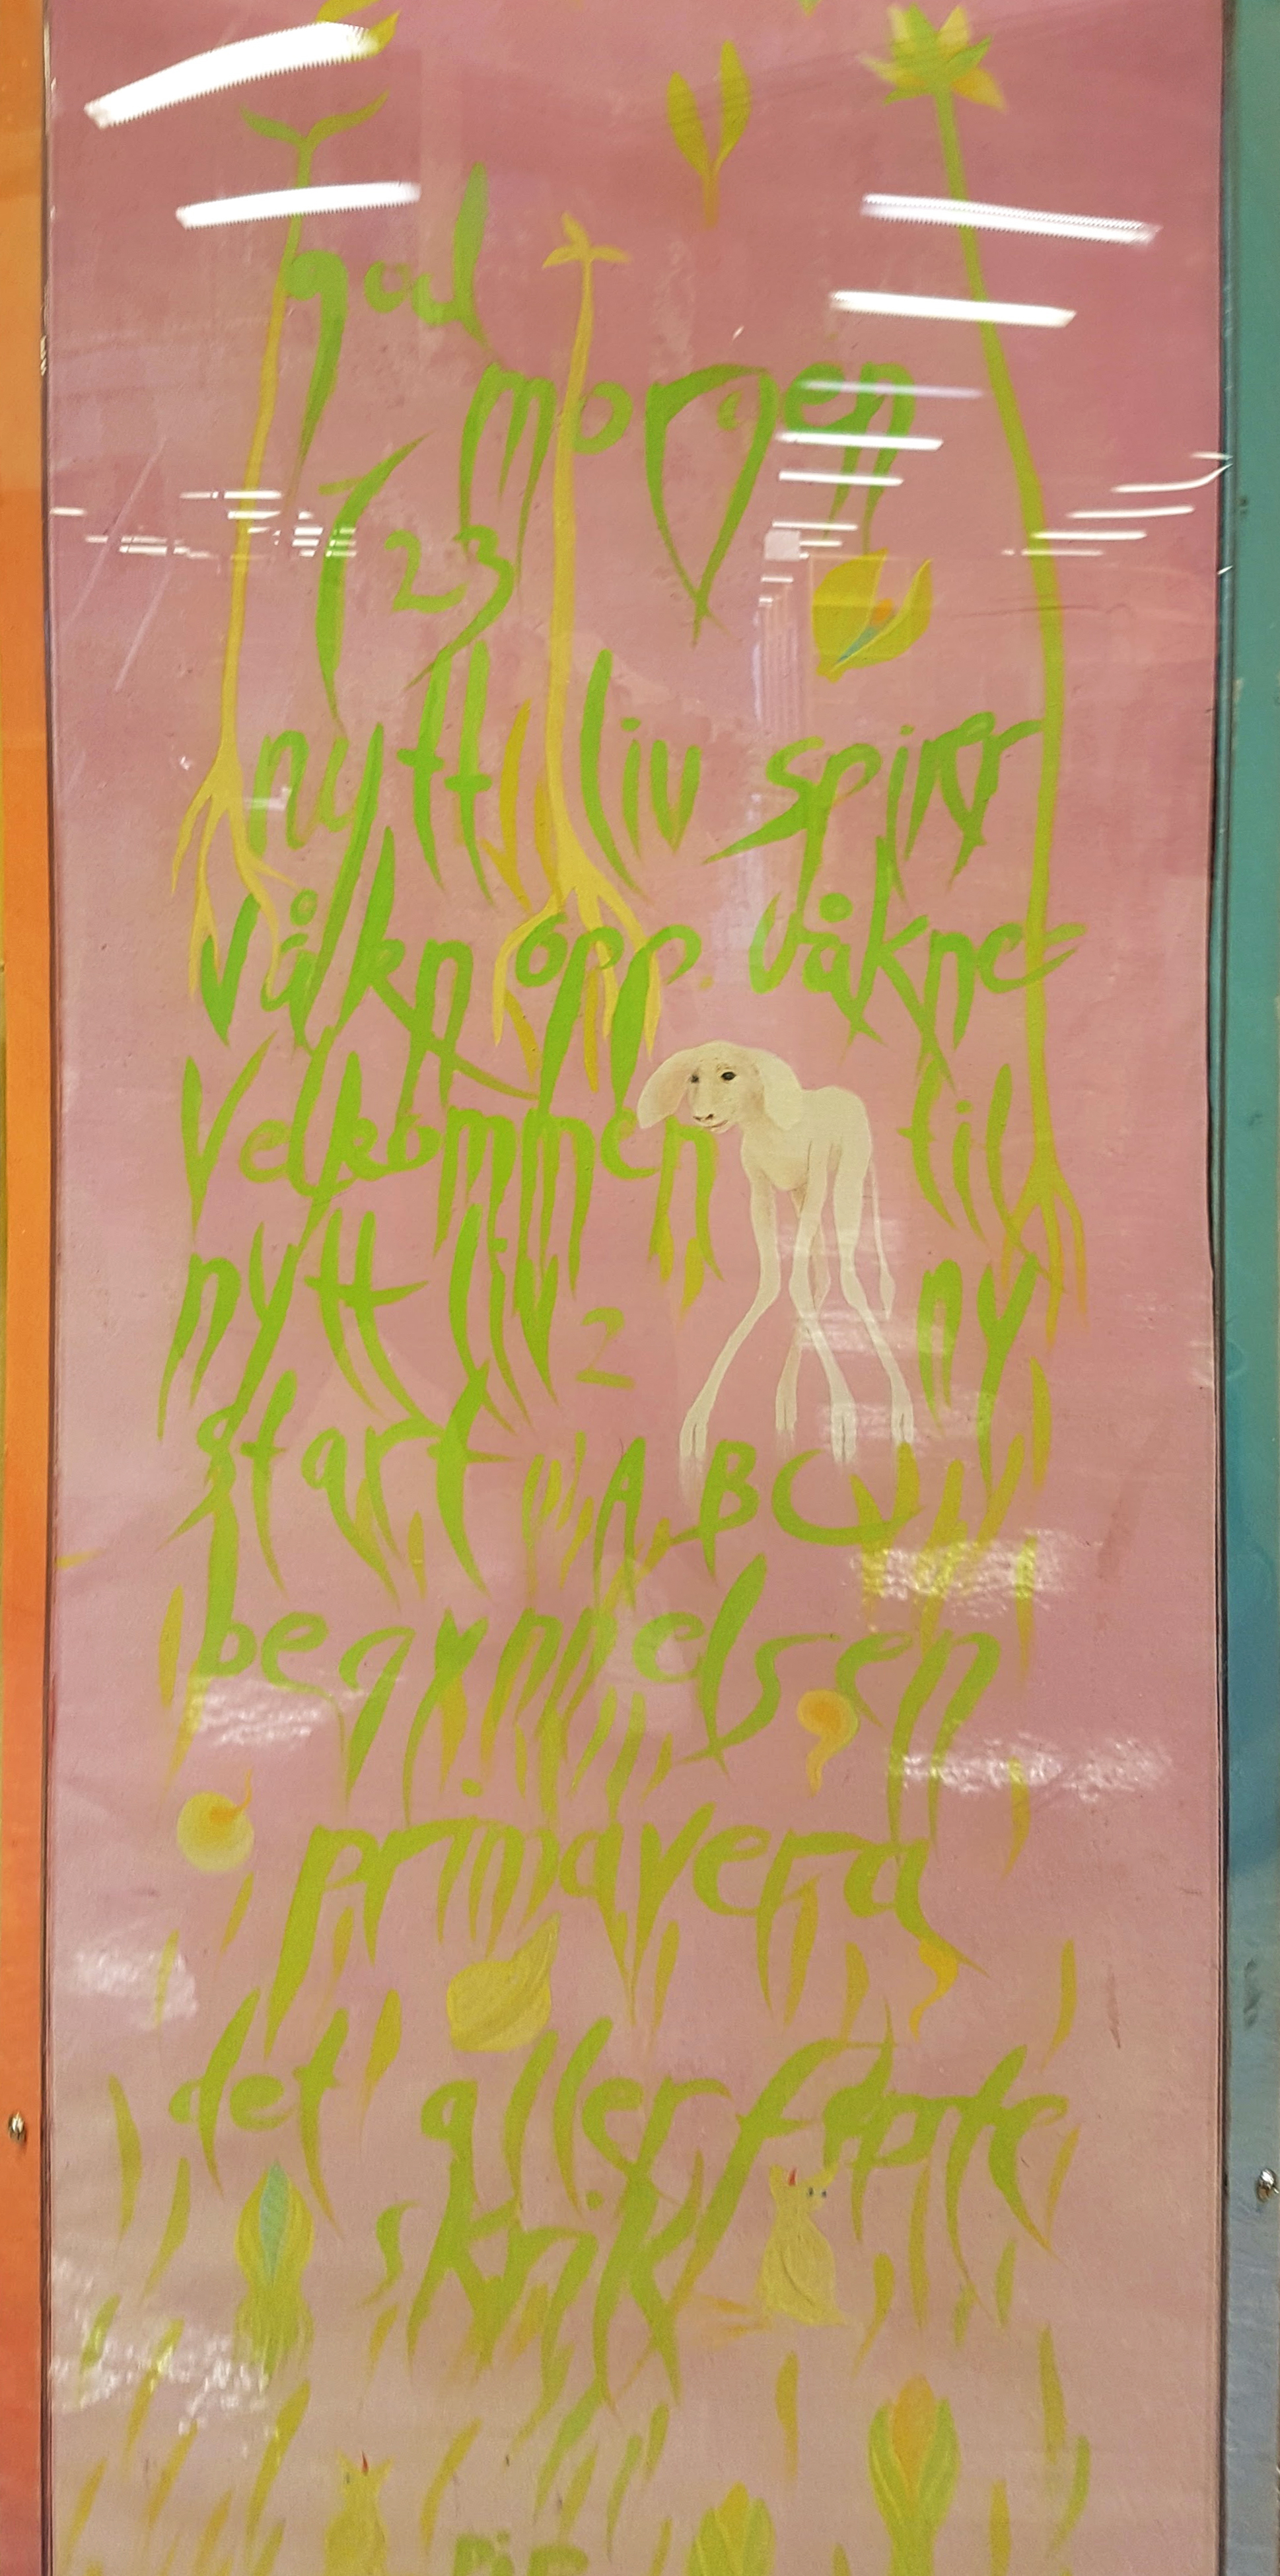 god
morgen
123
nytt liv spirer
våkn opp. våkne
Velkommen til
nytt liv 2 ny
start A B C
begynnelsen
primavera
det aller første
skrik